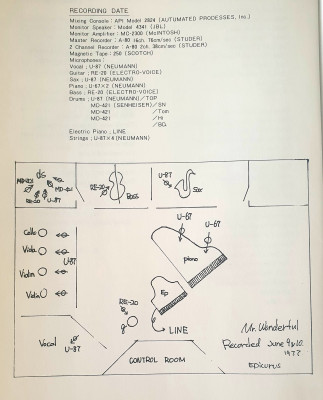 RECORDING DATE
Mixing Console : API Model 2824 (AUTOMATED PROCESSES, Inc.)
Monitor Speaker : Model 4341 (JBL)
Monitor Amplifier : MC-2300 (McINTOSH)
Master Recorder : A-80 16ch. 76cm/sec (STUDER)
2 Channel Recorder : A-80 2ch. 38cm/sec (STUDER)
Magnetic Tape : 250 (SCOTCH)
Microphones :
Vocal : U-87 (NEUMANN)
Guitar : RE-20 (ELECTRO-VOICE)
Sax : U-87 (NEUMANN)
Piano : U-67×2 (NEUMANN)
Bass : RE-20 (ELECTRO-VOICE)
Drums : U-87 (NEUMANN)/TOP
MD-421 (SENHEISER)/SN
MD-421 /Tom
MD-421 /Hi
/BD
Electric Piano : LINE
Strings : U-87×4 (NEUMANN)
ds
MD-421
MD-421
RE-20
U-87
RE-20
Bass
U-87
Sax
U-67
U-67
piano
Cello
Viola
U-87
Violin
Violin
Ep
RE-20
g
LINE
Vocal
U-87
CONTROL ROOM
Mr. Wonderful
Recorded June 9&10.
1977
Epicurus